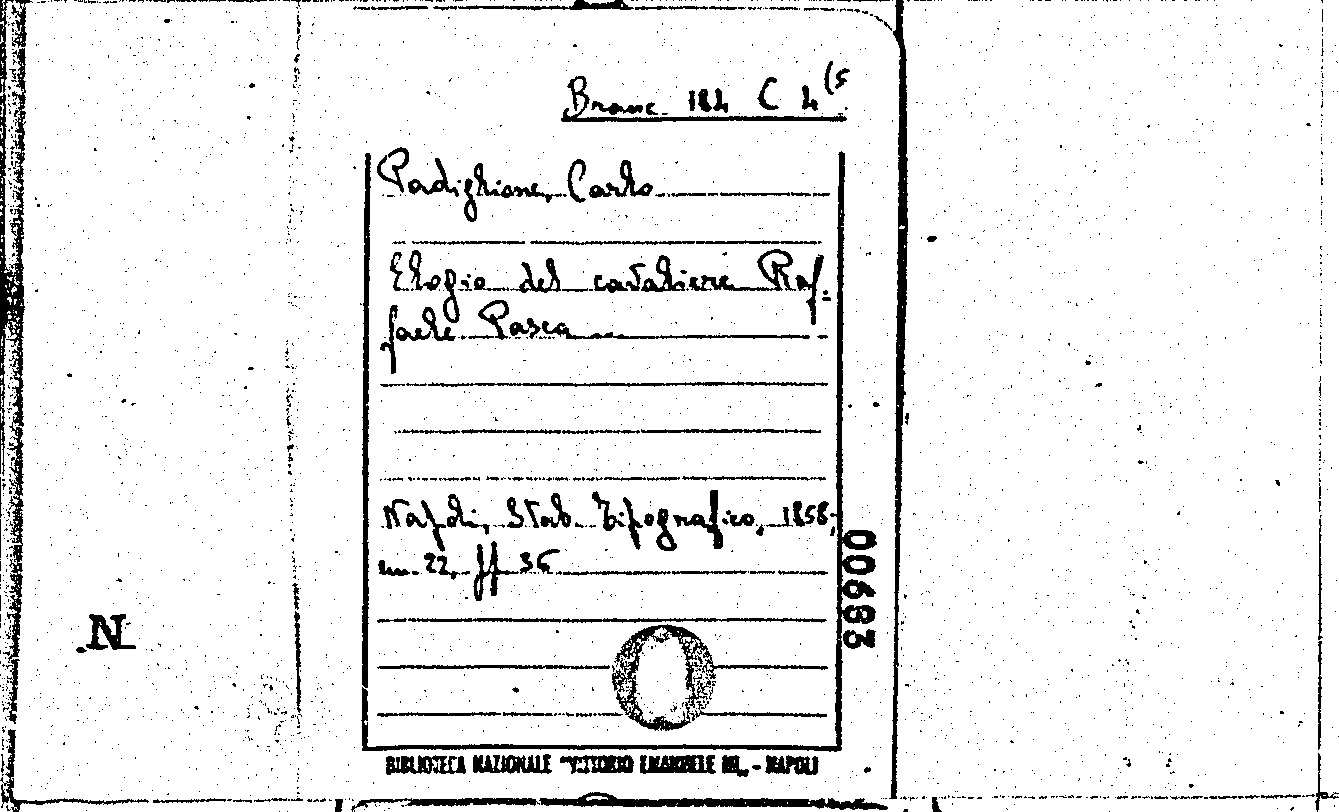 Branc. 184 C 4 (5
Padiglione, Carlo
Elogio del cavaliere Raf-
faele Pasca...
Napoli, Stab. Tipografico, 1858;
cm. 22, pp. 36
00683
N
BIBLIOTECA NAZIONALE "VITTORIO EMANUELE III„ - NAPOLI